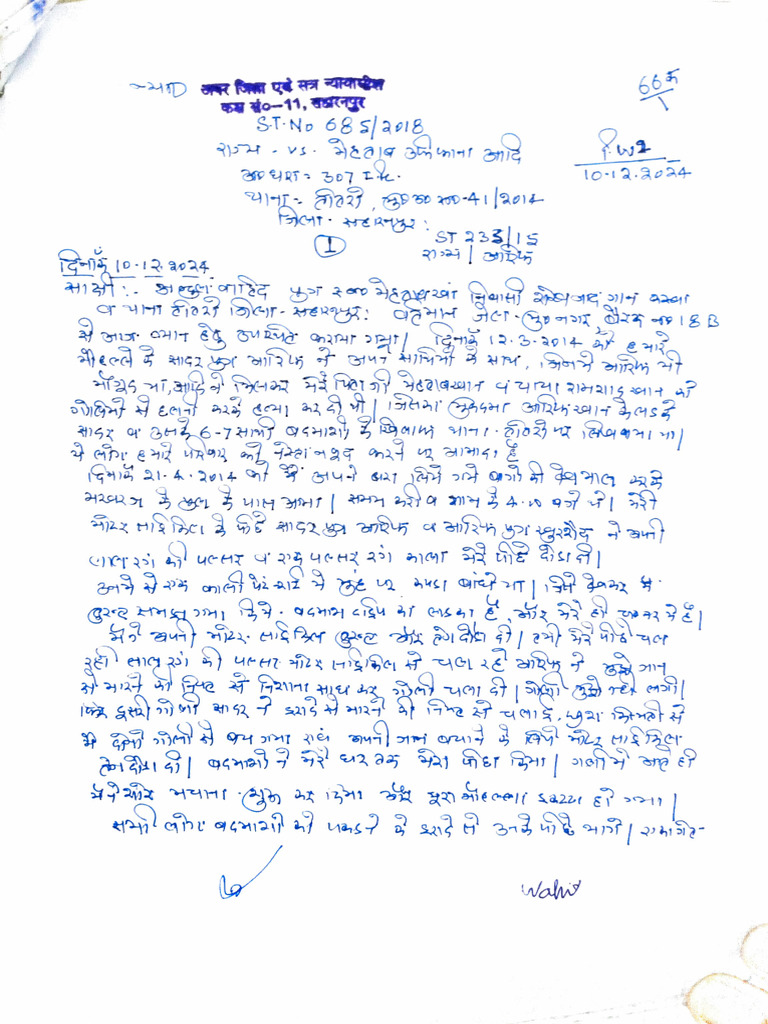 न्याया० अपर जिला एवं सत्र न्यायाधीश
कक्ष सं०-11, सहारनपुर
66क/1
S.T. No 685/2018
राज्य - vs - मेहताब आदि
P.W2
10-12-2024
धारा = 307 I.P.C.
थाना = मु०अ०सं०-41/2014
जिला- सहारनपुर
ST 233/15
राज्य / आरिफ
1
दिनाँक 10.12.2024
साक्षी :- वाहिद पुत्र स्व० मेहताबखां निवासी कस्बा
व थाना जिला- सहारनपुर वर्तमान जेल- बैरक न० 18 B
से आज ब्यान हेतु उपस्थित कराया गया। दिनाँक 12.3.2014 को हमारे
मौहल्ले के सादर पुत्र आरिफ ने अपने साथियों के साथ, जिनमे आरिफ भी
मौजूद था, आदि ने मिलकर मेरे पिता जी मेहताबखान व चाचा रामशाद खान की
गोलियों से छलनी करके हत्या कर दी थी। जिसका मुकदमा आरिफ खान के लडके
सादर व उसके 6-7 साथी बदमाशों के खिलाफ थाना पर लिखवाया था।
ये लोग हमारे परिवार को नेस्तनाबूद करने पर आमादा है
दिनाँक 21.4.2014 को मैं अपने द्वारा लिये गये बागो की देखभाल करके
के पुल के पास आया। समय करीब शाम के 4.00 बजे थे। मेरी
मोटर साईकिल के पीछे सादर पुत्र आरिफ व आरिफ पुत्र खुरशैद ने अपनी
लाल रंग की पल्सर व एक पल्सर रंग काला मेरे पीछे दौडा दी।
उनमे से एक काली पेंट शर्ट मे मुंह पर कपडा बांधे था। जिसे देखकर मैं
तुरन्त समझ गया कि ये बदमाश टाईप का लडका है, और मेरे ही चक्कर मे है।
मैंने अपनी मोटर साईकिल तुरन्त और तेज दौडा दी। तभी मेरे पीछे चल
रही लाल रंग की पल्सर मोटर साईकिल से चल रहे आरिफ ने मुझे जान
से मारने की नियत से निशाना साध कर गोली चला दी। गोली मुझे नही लगी।
फिर दूसरी गोली सादर ने इरादे से मारने की नियत से चलाई, खुश किस्मती से
मै दोनो गोली से बच गया अपनी जान बचाने के लिये मोटर साईकिल
तेज दौडा दी। बदमाशो ने मेरे घर तक मेरा पीछा किया। गली मे आते ही
मैंने शोर मचाना शुरू कर दिया और पूरा मौहल्ला इकट्ठा हो गया।
सभी लोग बदमाशो को पकडने के इरादे से उनके पीछे भागे।
Wahid